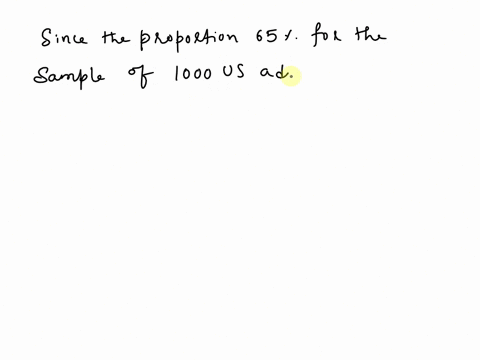 Since the proportion 65%. for the
Sample of 1000 US ad.